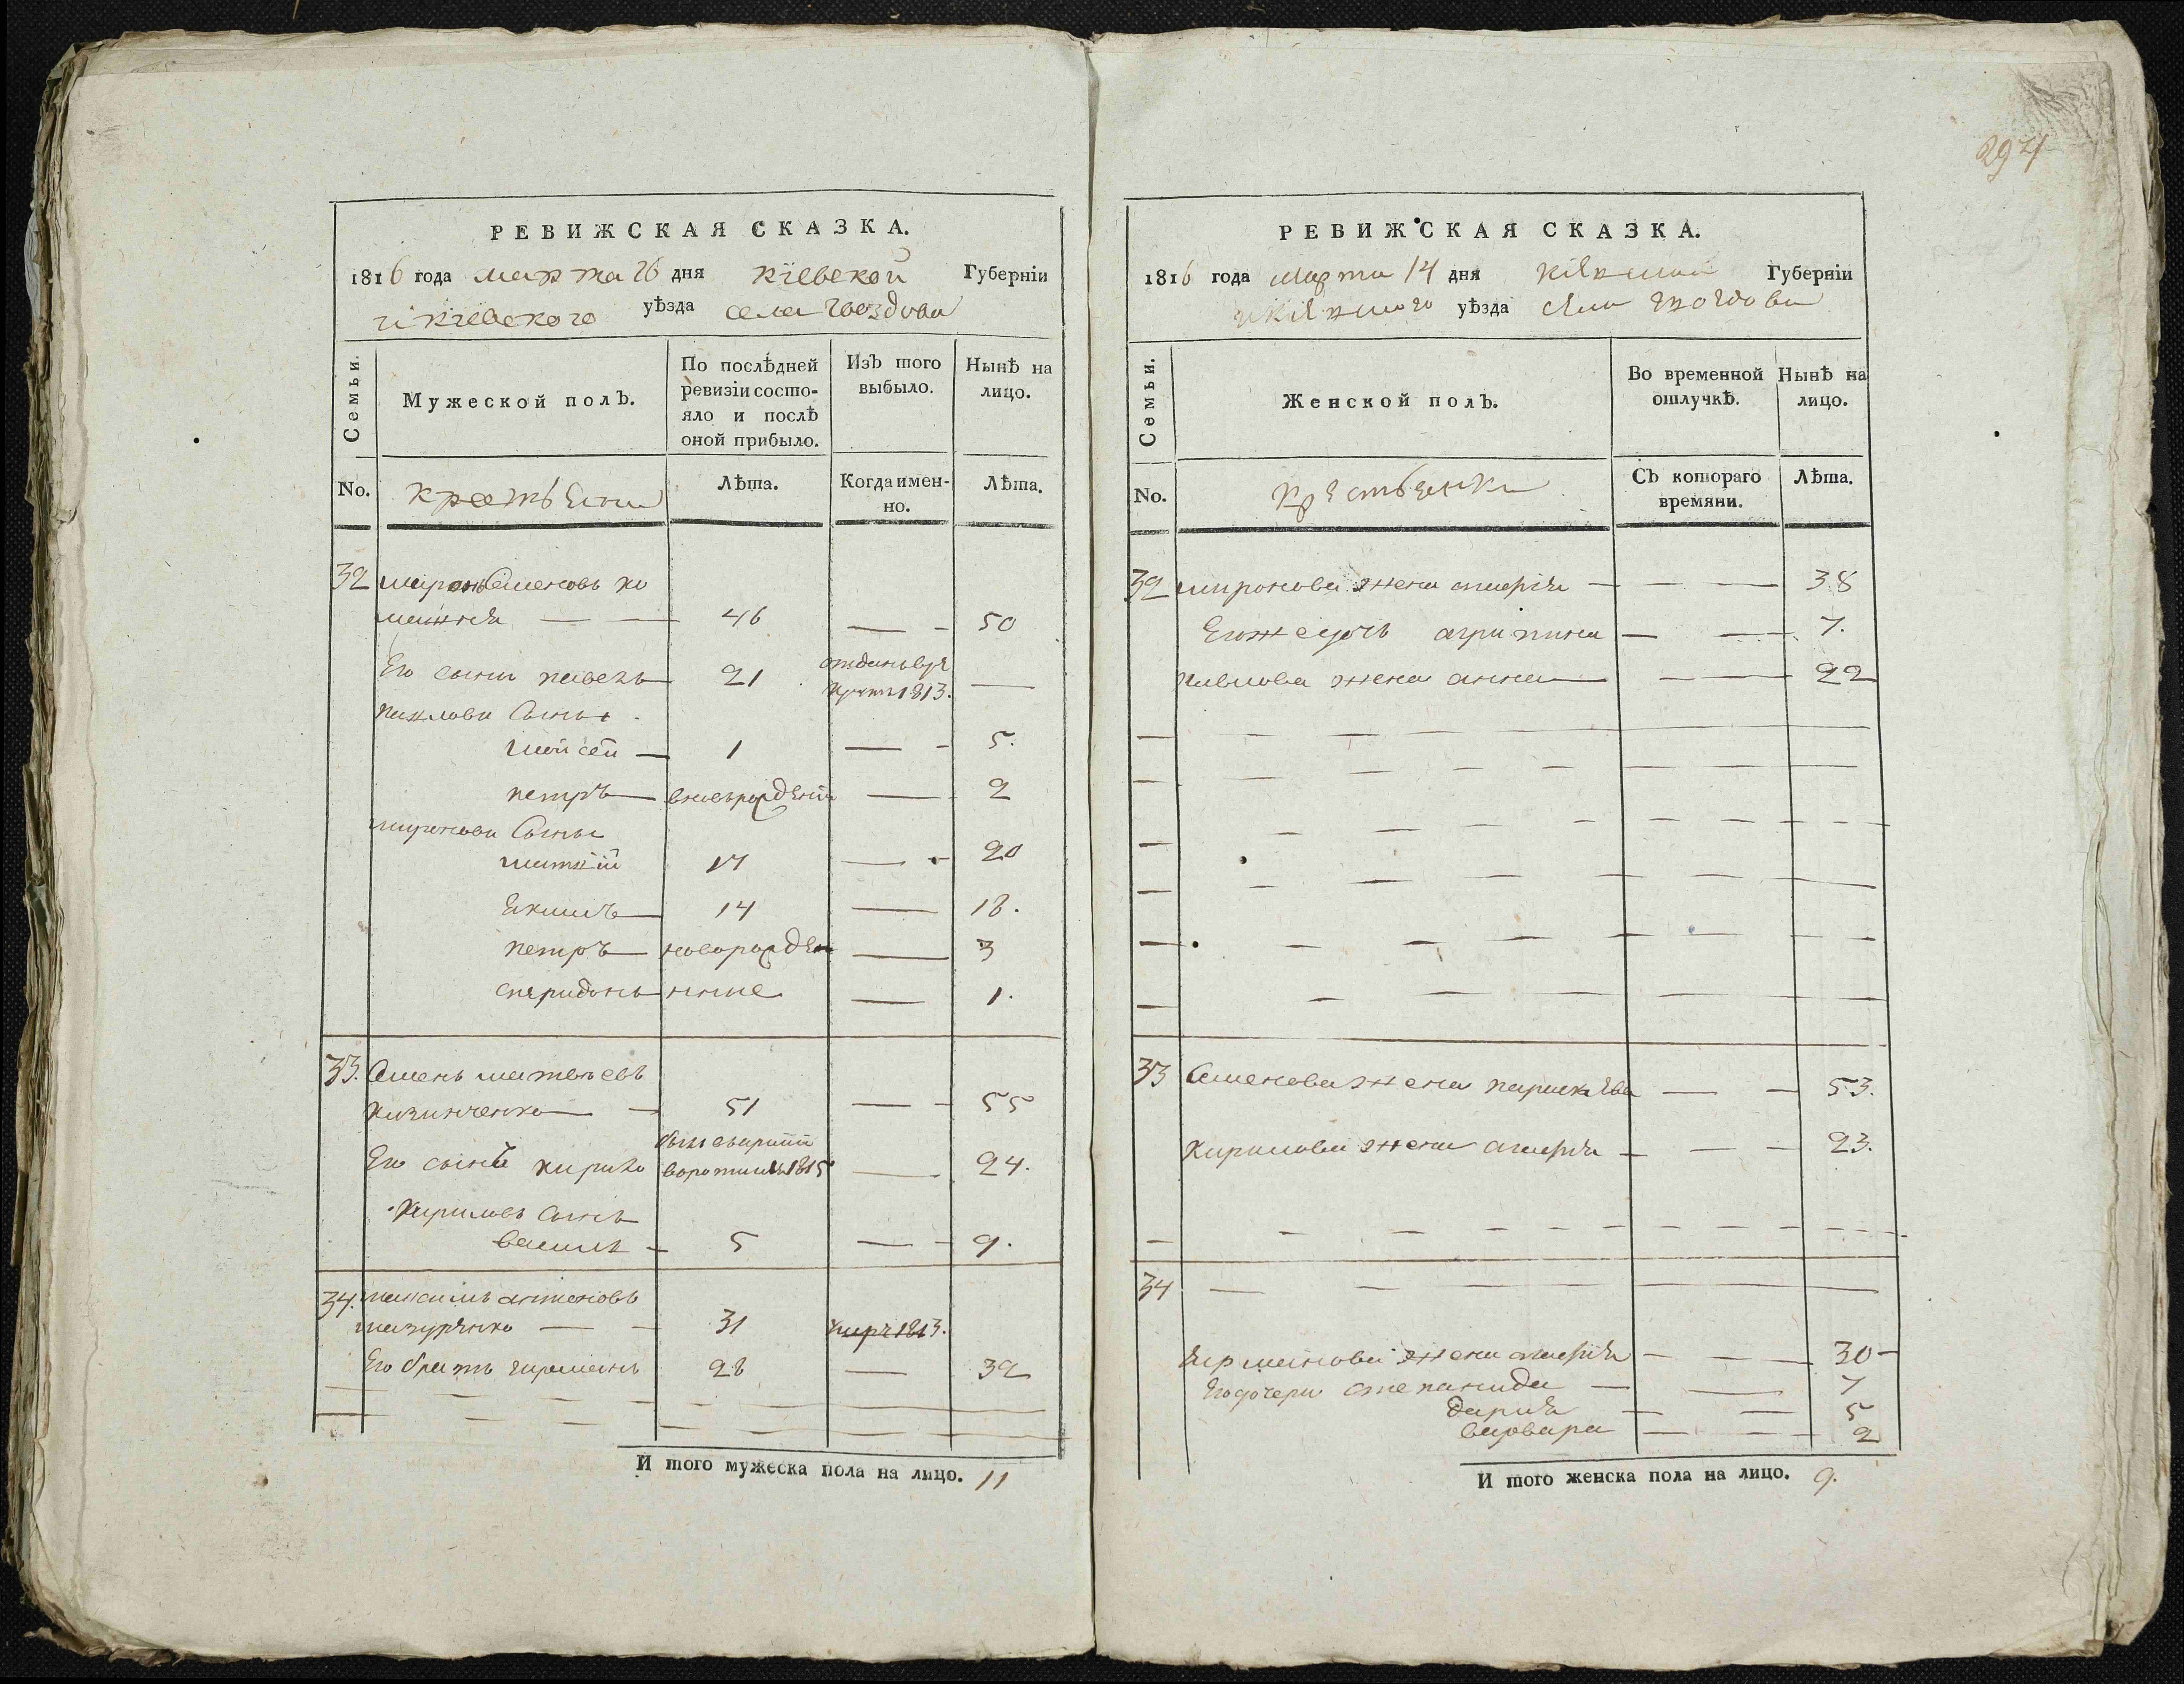 294
РЕВИЖСКАЯ СКАЗКА.
1816 года марта 26 дня кіевской Губерніи
и кіевского уѣзда села Гвоздова
Семьи.
Мужеской полЪ.
По послѣдней ревизіи состояло и послѣ оной прибыло.
ИзЪ того выбыло.
Нынѣ на лицо.
No.
крестьяни
Лѣта.
Когда именно.
Лѣта.
32 миронъ Семеновъ
46 — 50
Его сынъ павелъ 21 отданъ 1813. —
павлови Сыны
мойсей — 1 — 5.
петръ — — 2
миронови Сыны
17 — 20
Якимъ — 14 — 18.
петръ — новорожден — 3
спиридонъ нние — 1.
33. Семенъ матвѣевъ
51 — 55
Его сынъ кирило 1815 — 24.
Кириловъ Сынъ
василь — 5 — 9.
34. максимъ антоновъ
мазуренко — 31 1813.
Его братъ 28 — 32
И того мужеска пола на лицо. 11
РЕВИЖСКАЯ СКАЗКА.
1816 года марта 14 дня кіевской Губерніи
икіевского уѣзда села гвоздова
Семьи.
Женской полЪ.
Во временной отлучкѣ.
Нынѣ на лицо.
No.
крестьянки
СЪ котораго времяни.
Лѣта.
32 миронова жена марія — — — 38
Егож дочь агрипина — — 7.
павлова жена анна — — — 22
33 Семенова жена параскева — — 53.
кирилова жена марія — — — 23.
34
жена марія — — — 30
Его дочери степанида — — 7
дарія — — 5
варвара — — 2
И того женска пола на лицо. 9.